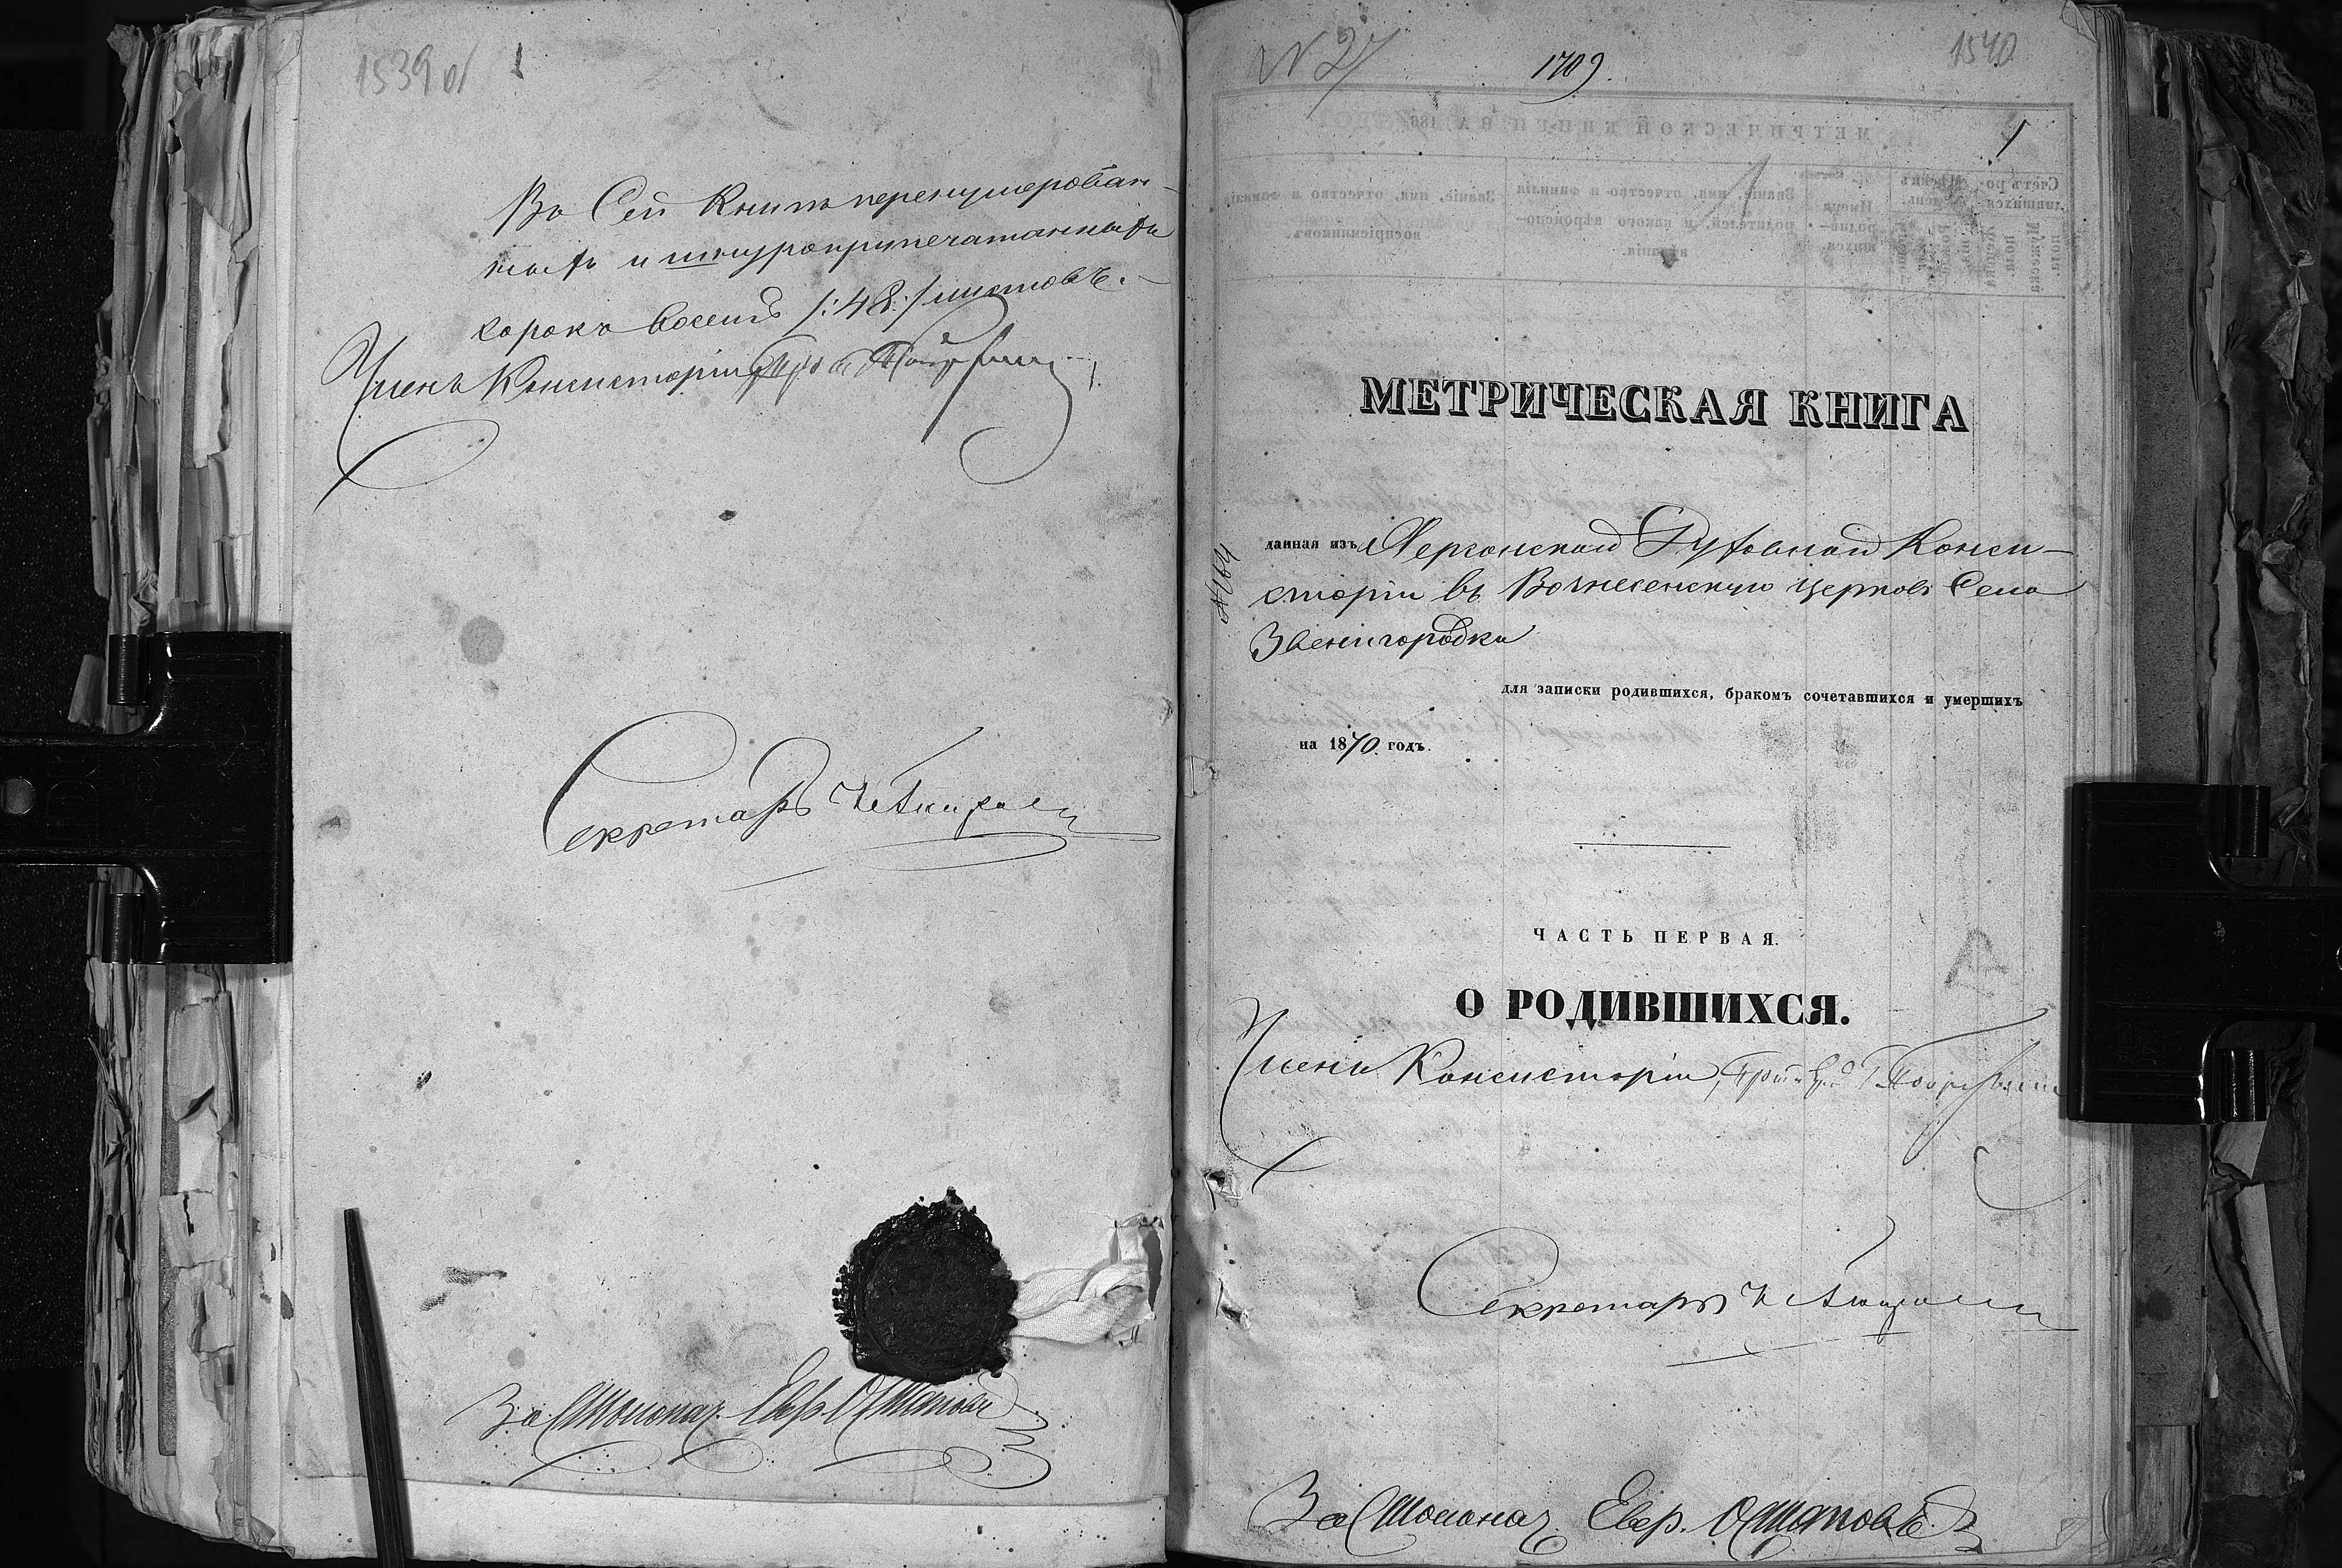 1539 об
Въ Сей Книгѣ перенумерован-
ныхъ и шнуроприпечатанныхъ
сорокъ восемь /:48:/ листовъ.
Членъ Консисторіи
Секретарь
За Столонач. Евр. Остаповъ
N 27
1709.
1540
1
МЕТРИЧЕСКАЯ КНИГА
данная изъ Херсонской Духовной Конси-
сторіи въ Вознесенскую церковь Села
Звенигородки
для записки родившихся, бракомъ сочетавшихся и умершихъ
на 1870. годъ.
ЧАСТЬ ПЕРВАЯ.
О РОДИВШИХСЯ.
Членъ Консисторіи,
Секретарь
За Столонач. Евр. Остаповъ